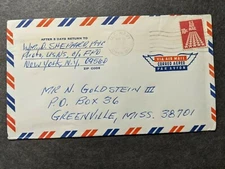 AFTER 5 DAYS RETURN TO
WM D. SHEPHERD
NEW YORK N.Y. 09560
ZIP CODE
VIA AIR MAIL
CORREO AEREO
PAR AVION
MR N. GOLDSTEIN III
P.O. BOX 36
GREENVILLE, MISS. 38701